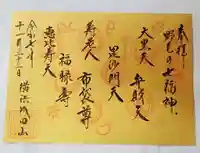 奉拝
野毛の七福神
大黒天
弁財天
毘沙門天
寿老人
布袋尊
福禄寿
恵比寿天
令和七年
十一月
横浜成田山